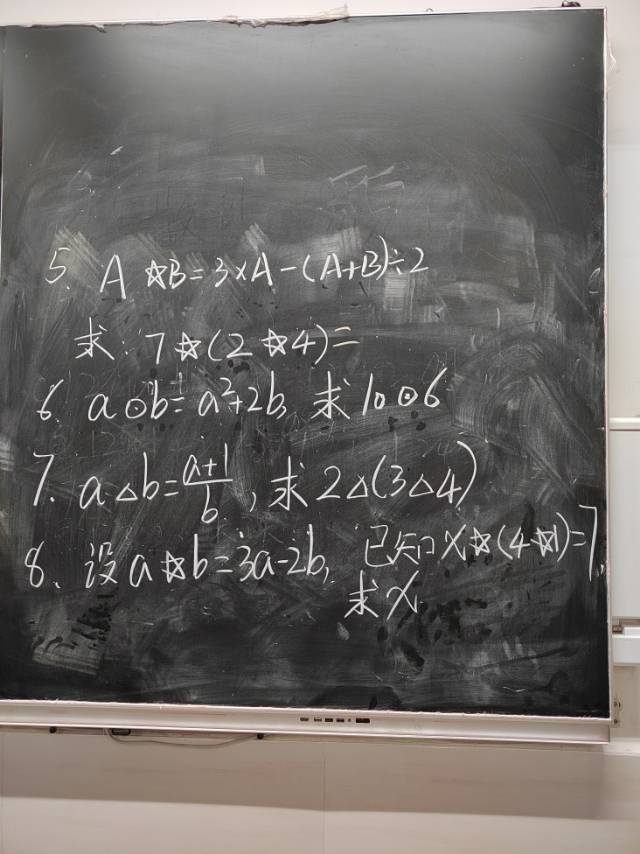 5. A☆B=3×A-(A+B)÷2
求:7☆(2☆4)=
6. a⊙b=a²+2b, 求10⊙6
7. a△b=\frac{a+1}{b}, 求2△(3△4)
8、设a☆b=3a-2b, 已知x☆(4☆1)=7,
求x